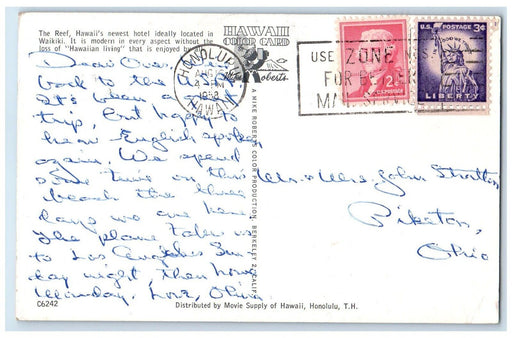 The Reef, Hawaii's newest hotel ideally located in
Waikiki. It is modern in every aspect without the
loss of "Hawaiian living" that is enjoyed by
HAWAII
COLOR CARD
Mike Roberts
HONOLULU
AUG
PM
1958
HAWAII
USE ZONE
FOR
MAIL
U.S. POSTAGE
2¢
U.S. POSTAGE 3¢
LIBERTY
Dear Ones,
back to the
It's been a
trip, but happy to
hear English spoken
again. We spend
some time on this
beach the three
days we are here.
The plane takes us
to Los Angeles Sun-
day night, then home
Monday. Love,
Mr. & Mrs. John Stratton
Piketon,
Ohio
A MIKE ROBERTS COLOR PRODUCTION, BERKELEY 2, CALIF.
C6242
Distributed by Movie Supply of Hawaii, Honolulu, T.H.